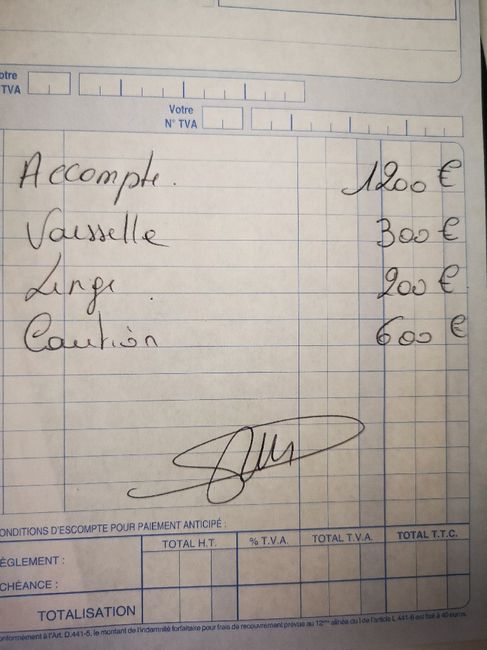 otre
TVA
Votre
N° TVA
Accompte. 1200 €
Vaisselle 300 €
Linge. 200 €
Caution 600 €
ONDITIONS D'ESCOMPTE POUR PAIEMENT ANTICIPÉ :
TOTAL H.T. % T.V.A. TOTAL T.V.A. TOTAL T.T.C.
ÈGLEMENT :
CHÉANCE :
TOTALISATION
onformément à l'Art. D.441-5, le montant de l'indemnité forfaitaire pour frais de recouvrement prévue au 12ème alinéa du I de l'article L 441-6 est fixé à 40 euros.